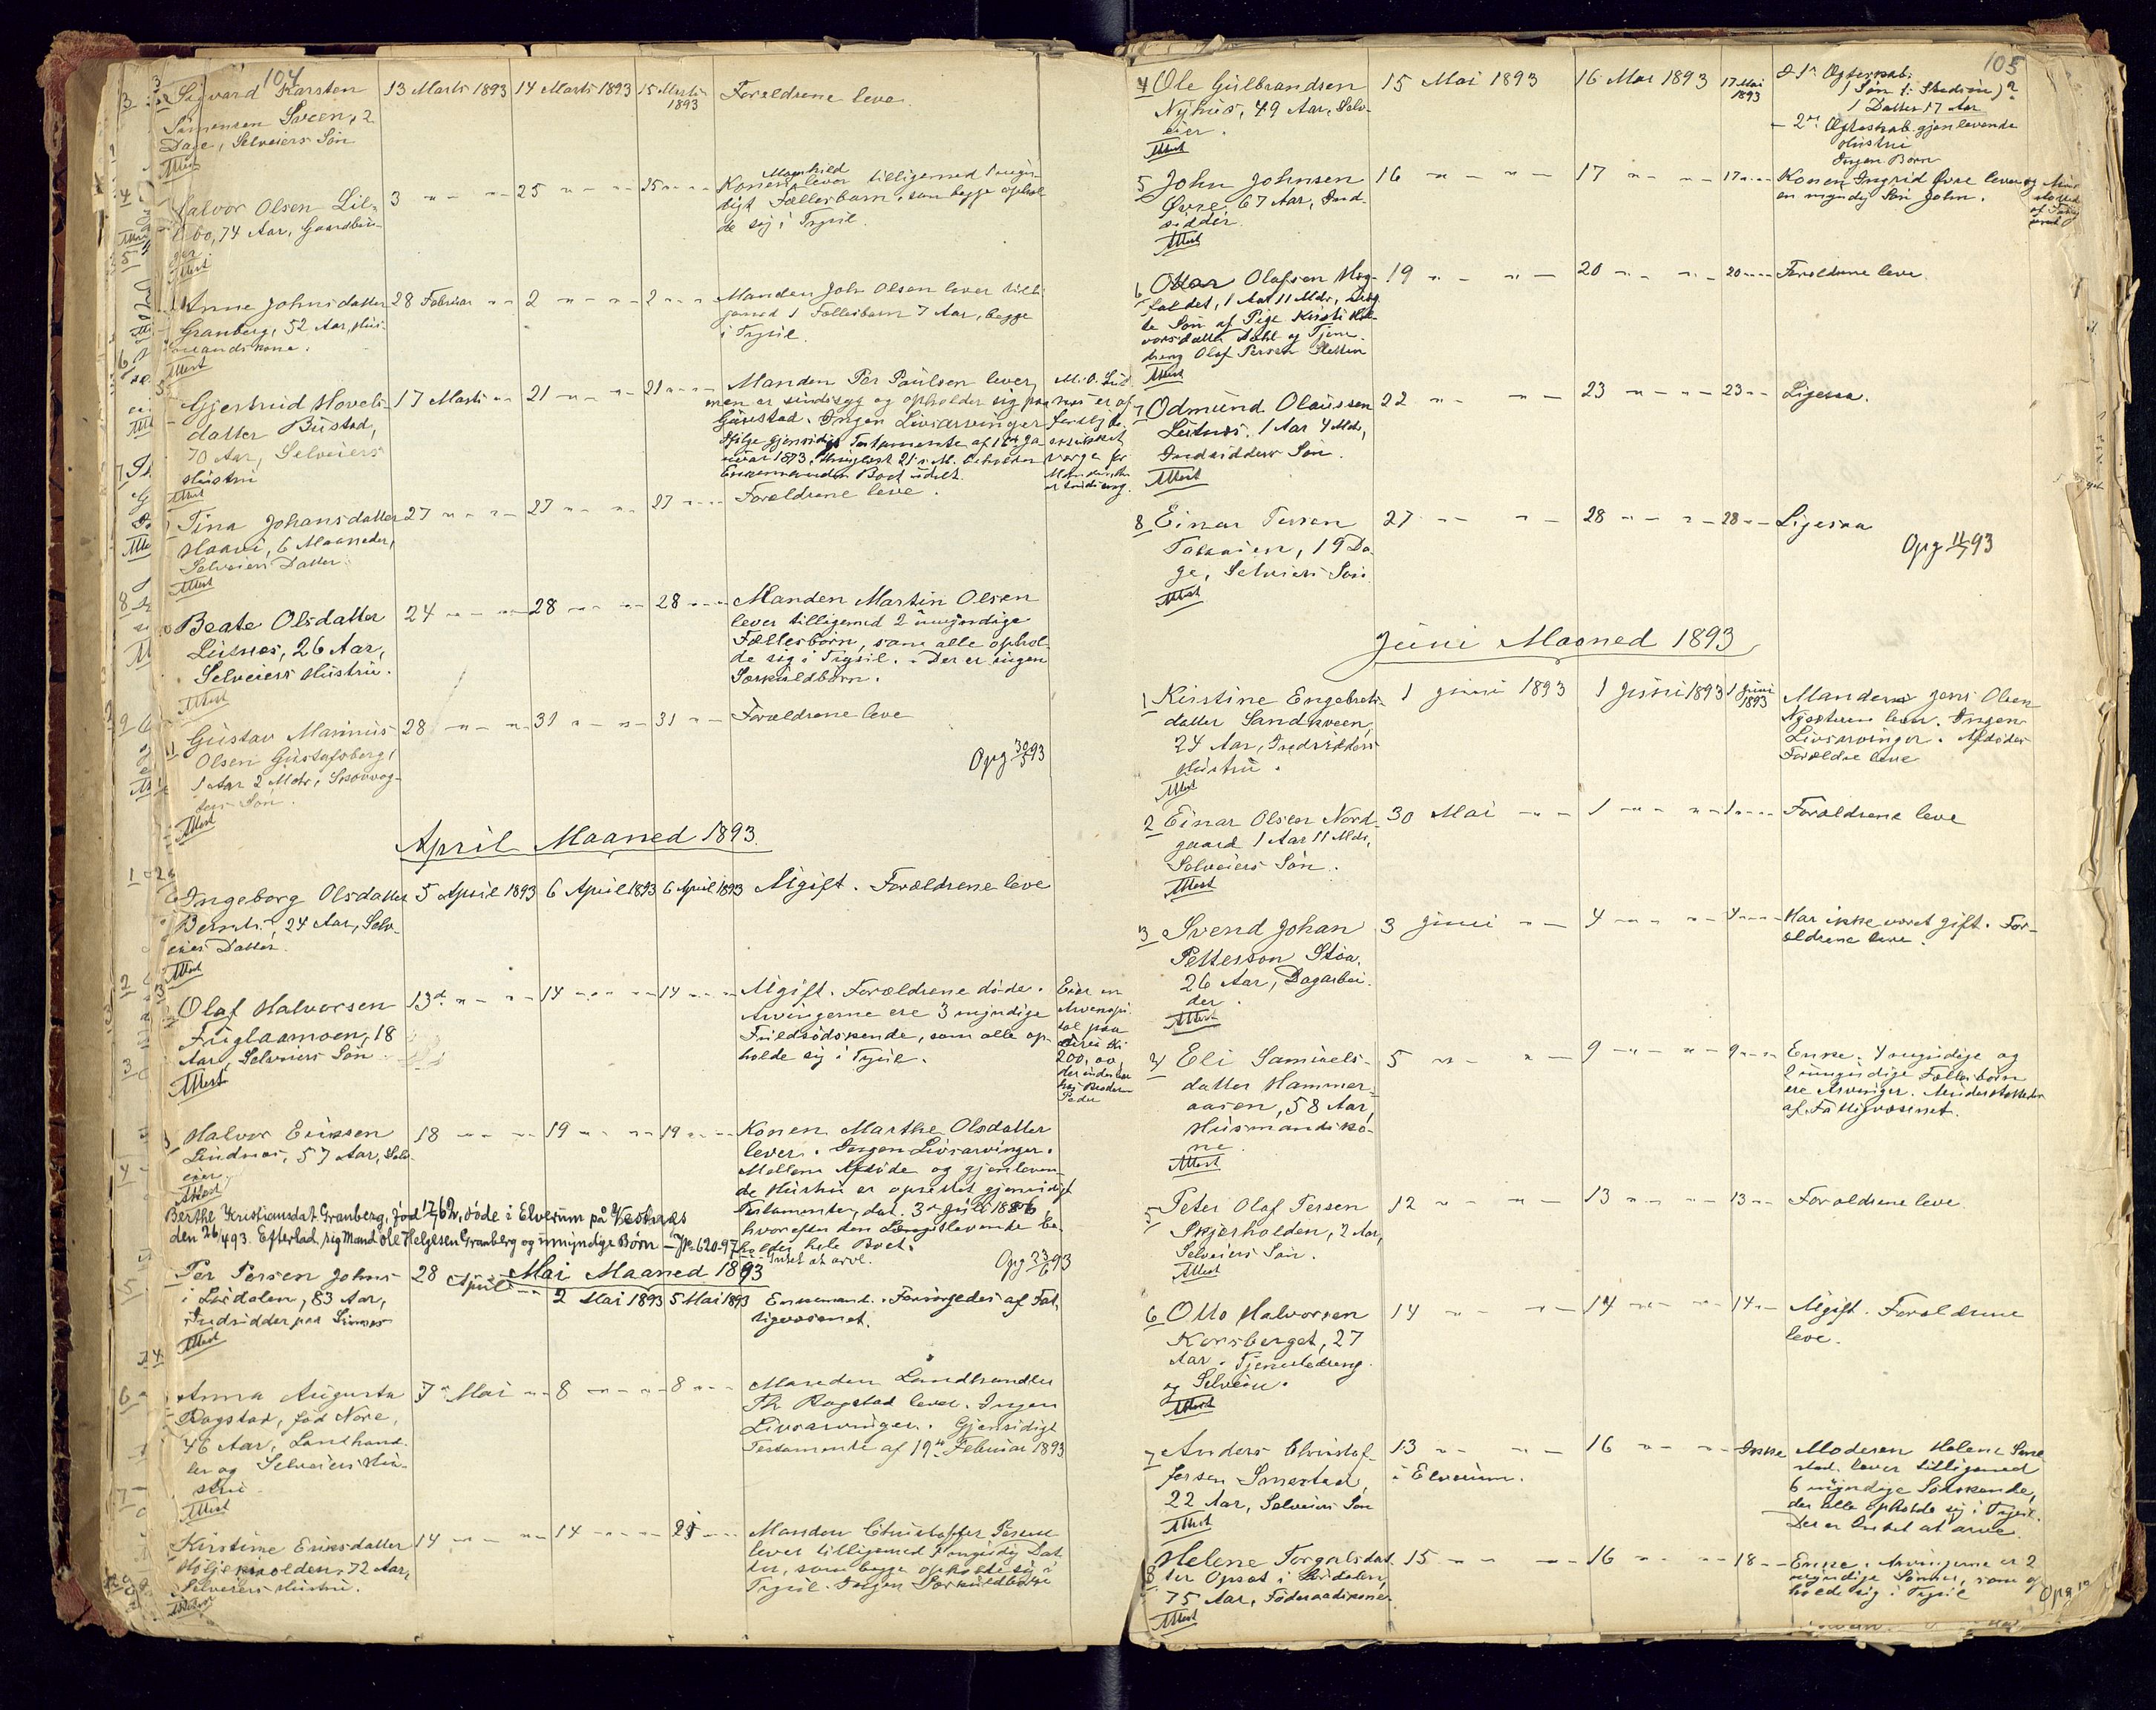 104
3 Sigvard Karsten 13 Marts 1893 14 Marts 1893 15 Marts 1893 Forældrene leve.
Simensen Sveen, 2
Dage, Selveiers Søn
Attest
4 Halvor Olsen Lil- 3 " – " 25 " – " 25 " – " Konen Magnhild lever tilligemed 1 myn-
lebo, 74 Aar, Gaardbru- digt Fællesbarn, som begge ophol-
ger de sig i Trysil.
Attest
Anne Johnsdatter 28 Februar " – 2 " – " 2 " – " Manden Joh Olsen lever tilli-
Granberg, 52 Aar, Hus- gemed 1 Fællesbarn 7 Aar, begge
mandskone. i Trysil.
Attest
Gjertrud Hovels- 17 Marts " – 21 " – " 21 " – " Manden Per Paulsen lever,
datter Bustad, men er sindssyg og opholder sig paa
70 Aar, Selveiers Gaustad. Ingen Livsarvinger
Hustru Ifølge gjensidigt Testamente af
Attest 1893, thinglæst 21 s. M. beholder
Enkemanden Boet udelt.
Tina Johansdatter 27 " – " 27 " – " 27 " – " Forældrene leve.
Haavi, 6 Maaneder,
Selveiers Datter.
Attest
Beate Olsdatter 24 " – " 28 " – " 28 " – " Manden Martin Olsen
Lutnes, 26 Aar, lever tilligemed 2 umyndige
Selveiers Hustru. Fællesbørn, som alle ophol-
Attest de sig i Trysil. – Der er ingen
Særkuldbørn.
Gustav Marinus 28 " – " 31 " – " 31 " – Forældrene leve
Olsen Gustafsberg, Opg 30/5 93
1 Aar 2 Mdr, Skovvog-
ters Søn.
Attest
April Maaned 1893.
1 Ingeborg Olsdatter 5 April 1893 6 April 1893 6 April 1893 Ugift. Forældrene leve
Bernts. 24 Aar, Selv-
eiers Datter.
Attest
2 Olaf Halvorsen 13de " – " 14 " – " 14 " – " Ugift. Forældrene døde. Eier en
Fuglaamoen, 18 Arvingerne ere 3 myndige Arvekapi-
Aar, Selveiers Søn Fuldsødskende, som alle op- tal paa
Attest holde sig i Trysil. 200,00,
Broderen
Peder
3 Halvor Eriksen 18 " – " 19 " – " 19 " – " Konen Marthe Olsdatter
Lindnæs, 57 Aar, Selv- lever. Ingen Livsarvinger.
eier. Mellem Afdøde og gjenleven-
Attest de Hustru er oprettet gjensidigt
Testamente, dat. 3de Juli 1886,
hvorefter den Længstlevende be-
holder hele Boet.
Berthe Kristiansdat Granberg, fød 62, døde i Elverum på Vestnæs
den 26/4 93. Efterlad. sig Mand Ole Helgesen Granberg og umyndige Børn – Jr 620-97
Intet at arve. Opg 23/6 93
Mai Maaned 1893
Per Persen Johns- 28 April " 2 Mai 1893 5 Mai 1893 Enkemand. Forsørgedes af Fat-
i Lutdalen, 83 Aar, tigvæsenet.
Indsidder paa
Attest
Anna Augusta 7 Mai " – 8 " – " 8 " – " Manden Landhandler
Rogstad, fød Nore, Th. Rogstad lever. Ingen
46 Aar, Landhand- Livsarvinger. Gjensidigt
ler og Selveiers Hu- Testamente af 19de Februar 1893
stru
Attest
Kirstine Eriksdatter 14 " – " 14 " – " 21 " – Manden Christoffer Persen
72 Aar, lever tilligemed 1 myndig Dat-
Selveiers Hustru. ter, som begge opholde sig i
Attest Trysil. Ingen Særkuldbørn
105
4 Ole Gulbrandsen 15 Mai 1893 16 Mai 1893 17 Mai 1893 I 1ste Ægteskab:
Nyhus, 49 Aar, Selv- 1 Søn
eier. 1 Datter 17 Aar
Attest – 2det Ægteskab gjenlevende
Hustru
Ingen Børn
5 John Johnsen 16 " – " – 17 " – " – 17 " – " Konen Ingrid Øvre lever og
Øvre 67 Aar, Ind- en myndig Søn John.
sidder.
Attest
6 Ottar Olafsen Høg- 19 " – " – 20 " – " – 20 " – " Forældrene leve.
faldet, 1 Aar 11 Mdr, uæg-
te Søn af Pige Kirsti Hal-
vorsdatter Dahl og Tjene-
dreng Olaf Persen Sletten
Attest
7 Odmund Olaussen 22 " – " – 23 " – " – 23 " – Ligesaa.
Lutnes. 1 Aar 4 Mdr,
Indsidders Søn.
Attest
8 Einar Persen 27 " – " – 28 " – " – 28 " – Ligesaa
19 Da- Opg 11/7 93
ge, Selveiers Søn.
Attest
Juni Maaned 1893
1 Kirstine Engebrets- 1 Juni 1893 1 Juni 1893 1 Juni 1893 Manden Jens Olsen
datter Sandkveen, lever. Ingen
24 Aar, Indsidders Livsarvinger. Afdødes
Hustru. Forældre leve
Attest
2 Einar Olsen Nord- 30 Mai " – 1 " – " – 1 " – " Forældrene leve
gaard 1 Aar 11 Mdr,
Selveiers Søn.
Attest
3 Svend Johan 3 Juni " – 4 " – " – 4 " – " Har ikke været gift. For-
Petterson Stöa, ældrene leve.
26 Aar, Dagarbei-
der.
Attest
4 Eli Samuels- 5 " – " – 9 " – " – 9 " – " Enke. 4 myndige og
datter Hammer- 2 umyndige Fællesbørn
aasen, 58 Aar, ere Arvinger. Understøttedes
Husmandsko- af Fattigvæsenet.
ne
Attest
5 Peter Olaf Persen 12 " – " – 13 " – " – 13 " – Forældrene leve
Skjærholden, 2 Aar,
Selveiers Søn.
Attest
6 Otto Halvorsen 14 " – " – 14 " – " – 14 " – Ugift. Forældrene
Korsberget, 27 leve.
Aar. Tjenestedreng
og Selveier.
Attest
7 Anders Christof- 13 " – " – 16 " – " – Ikke Moderen Helene Sme-
fersen Smestad, i Elverum. stad lever tilligemed
22 Aar, Selveiers Søn 6 myndige Søskende,
Attest der alle opholde sig i Trysil.
Der er Intet at arve.
8 Helene Torgalsdat- 15 " – " – 16 " – " – 18 " – Enke. Arvingerne er 2
ter Opsat i Lutdalen, myndige Sønner, som op-
75 Aar, Føderaadskone. holde sig i Trysil
Attest